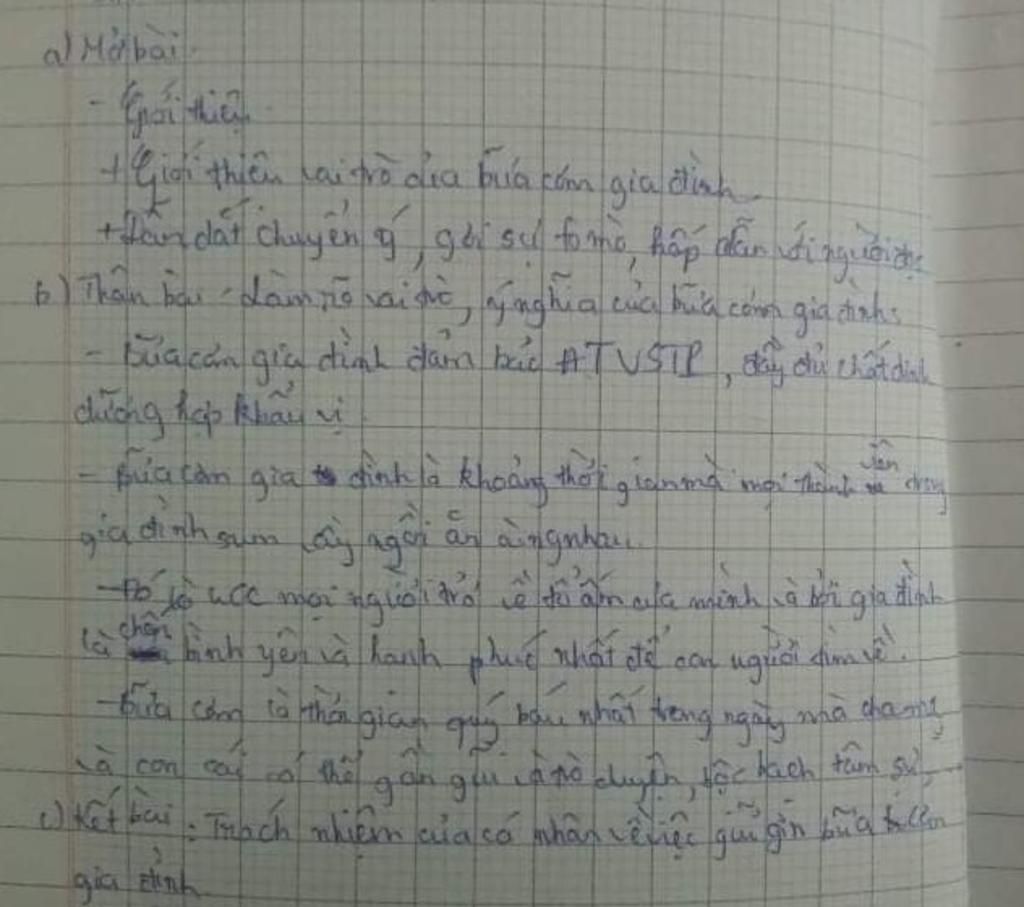 a) Mở bài.
- Giới thiệu
+ Giới thiệu vai trò của bữa cơm gia đình
+ Dẫn dắt chuyển ý, gợi sự tò mò, hấp dẫn với người đọc
b) Thân bài - làm rõ vai trò, ý nghĩa của bữa cơm gia đình:
- Bữa cơm gia đình đảm bảo ATVSTP, đầy đủ chất dinh
dưỡng hợp khẩu vị
- Bữa cơm gia đình là khoảng thời gian mà mọi thành viên trong
gia đình sum vầy ngồi ăn cùng nhau.
- Đó là lúc mọi người trở về tổ ấm của mình và bởi gia đình
là chốn bình yên và hạnh phúc nhất để con người tìm về.
- Bữa cơm là thời gian quý báu nhất trong ngày mà cha mẹ
và con cái có thể gần gũi và trò chuyện, bộc bạch tâm sự
c) Kết bài: Trách nhiệm của cá nhân về việc giữ gìn bữa cơm
gia đình